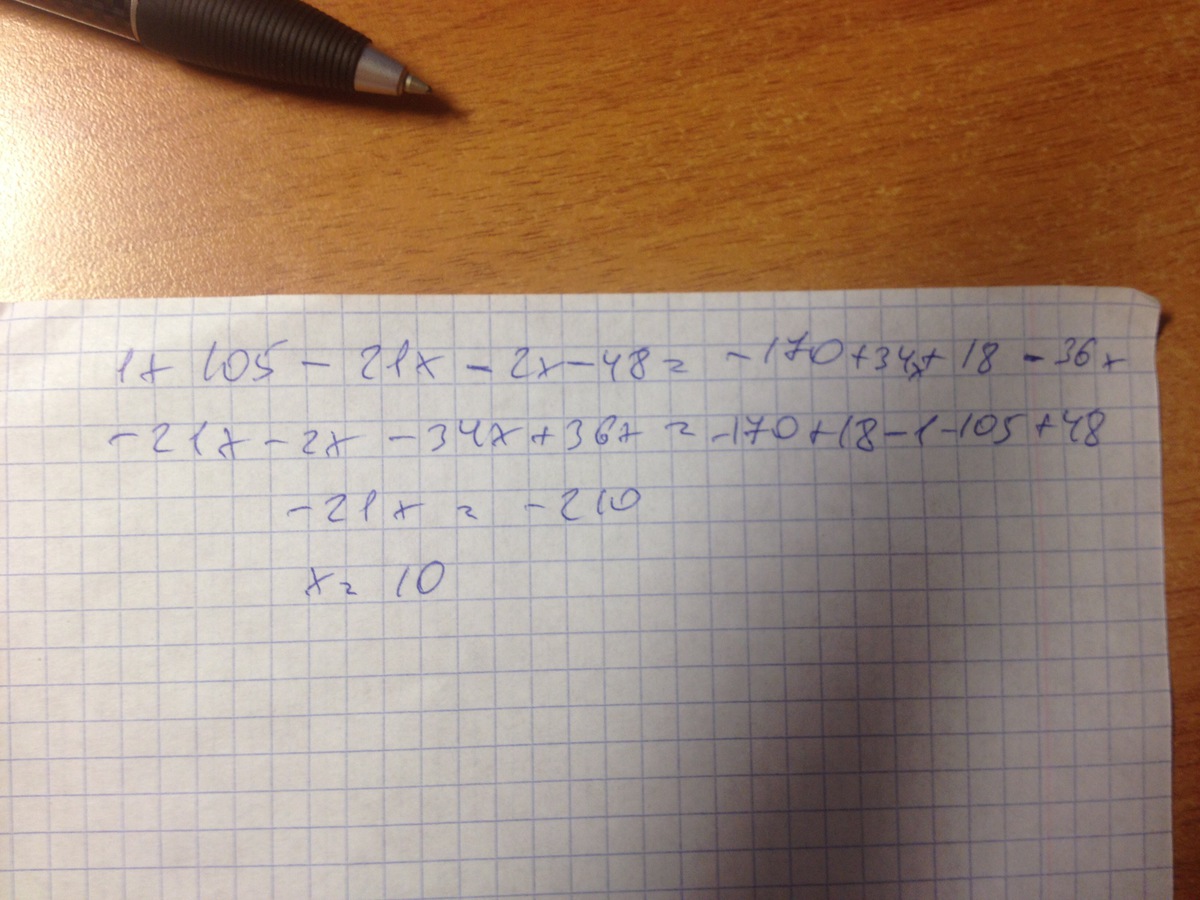 1+ 105 - 21x - 2x - 48 = -170 + 34x + 18 - 36x
-21x - 2x - 34x + 36x = -170 + 18 - 1 - 105 + 48
-21x = -210
x = 10